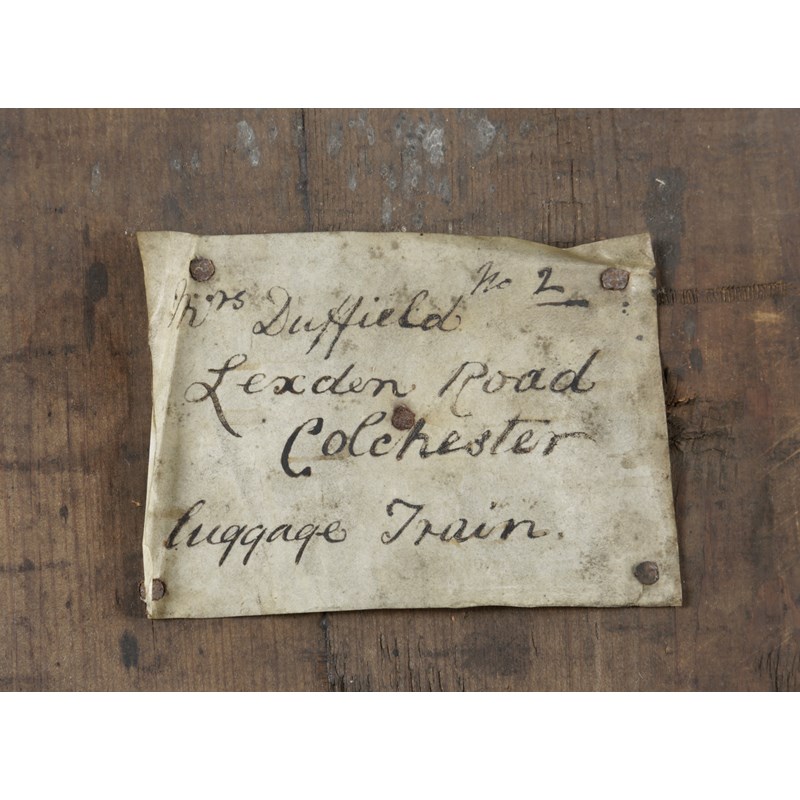 Mrs Duffield No 2
Lexden Road
Colchester
luggage Train.